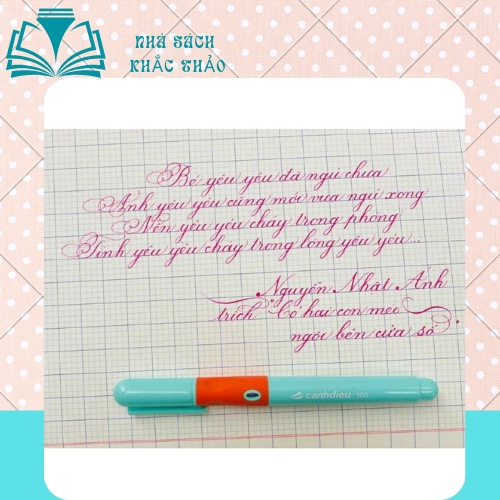 NHÀ SÁCH
KHẮC THẢO
Bé yêu yêu đã ngủ chưa
Anh yêu yêu cũng mới vừa ngủ xong
Nến yêu yêu cháy trong phòng
Tình yêu yêu cháy trong lòng yêu yêu...
Nguyễn Nhật Ánh
trích Có hai con mèo
ngồi bên cửa sổ.
canhdieu 106